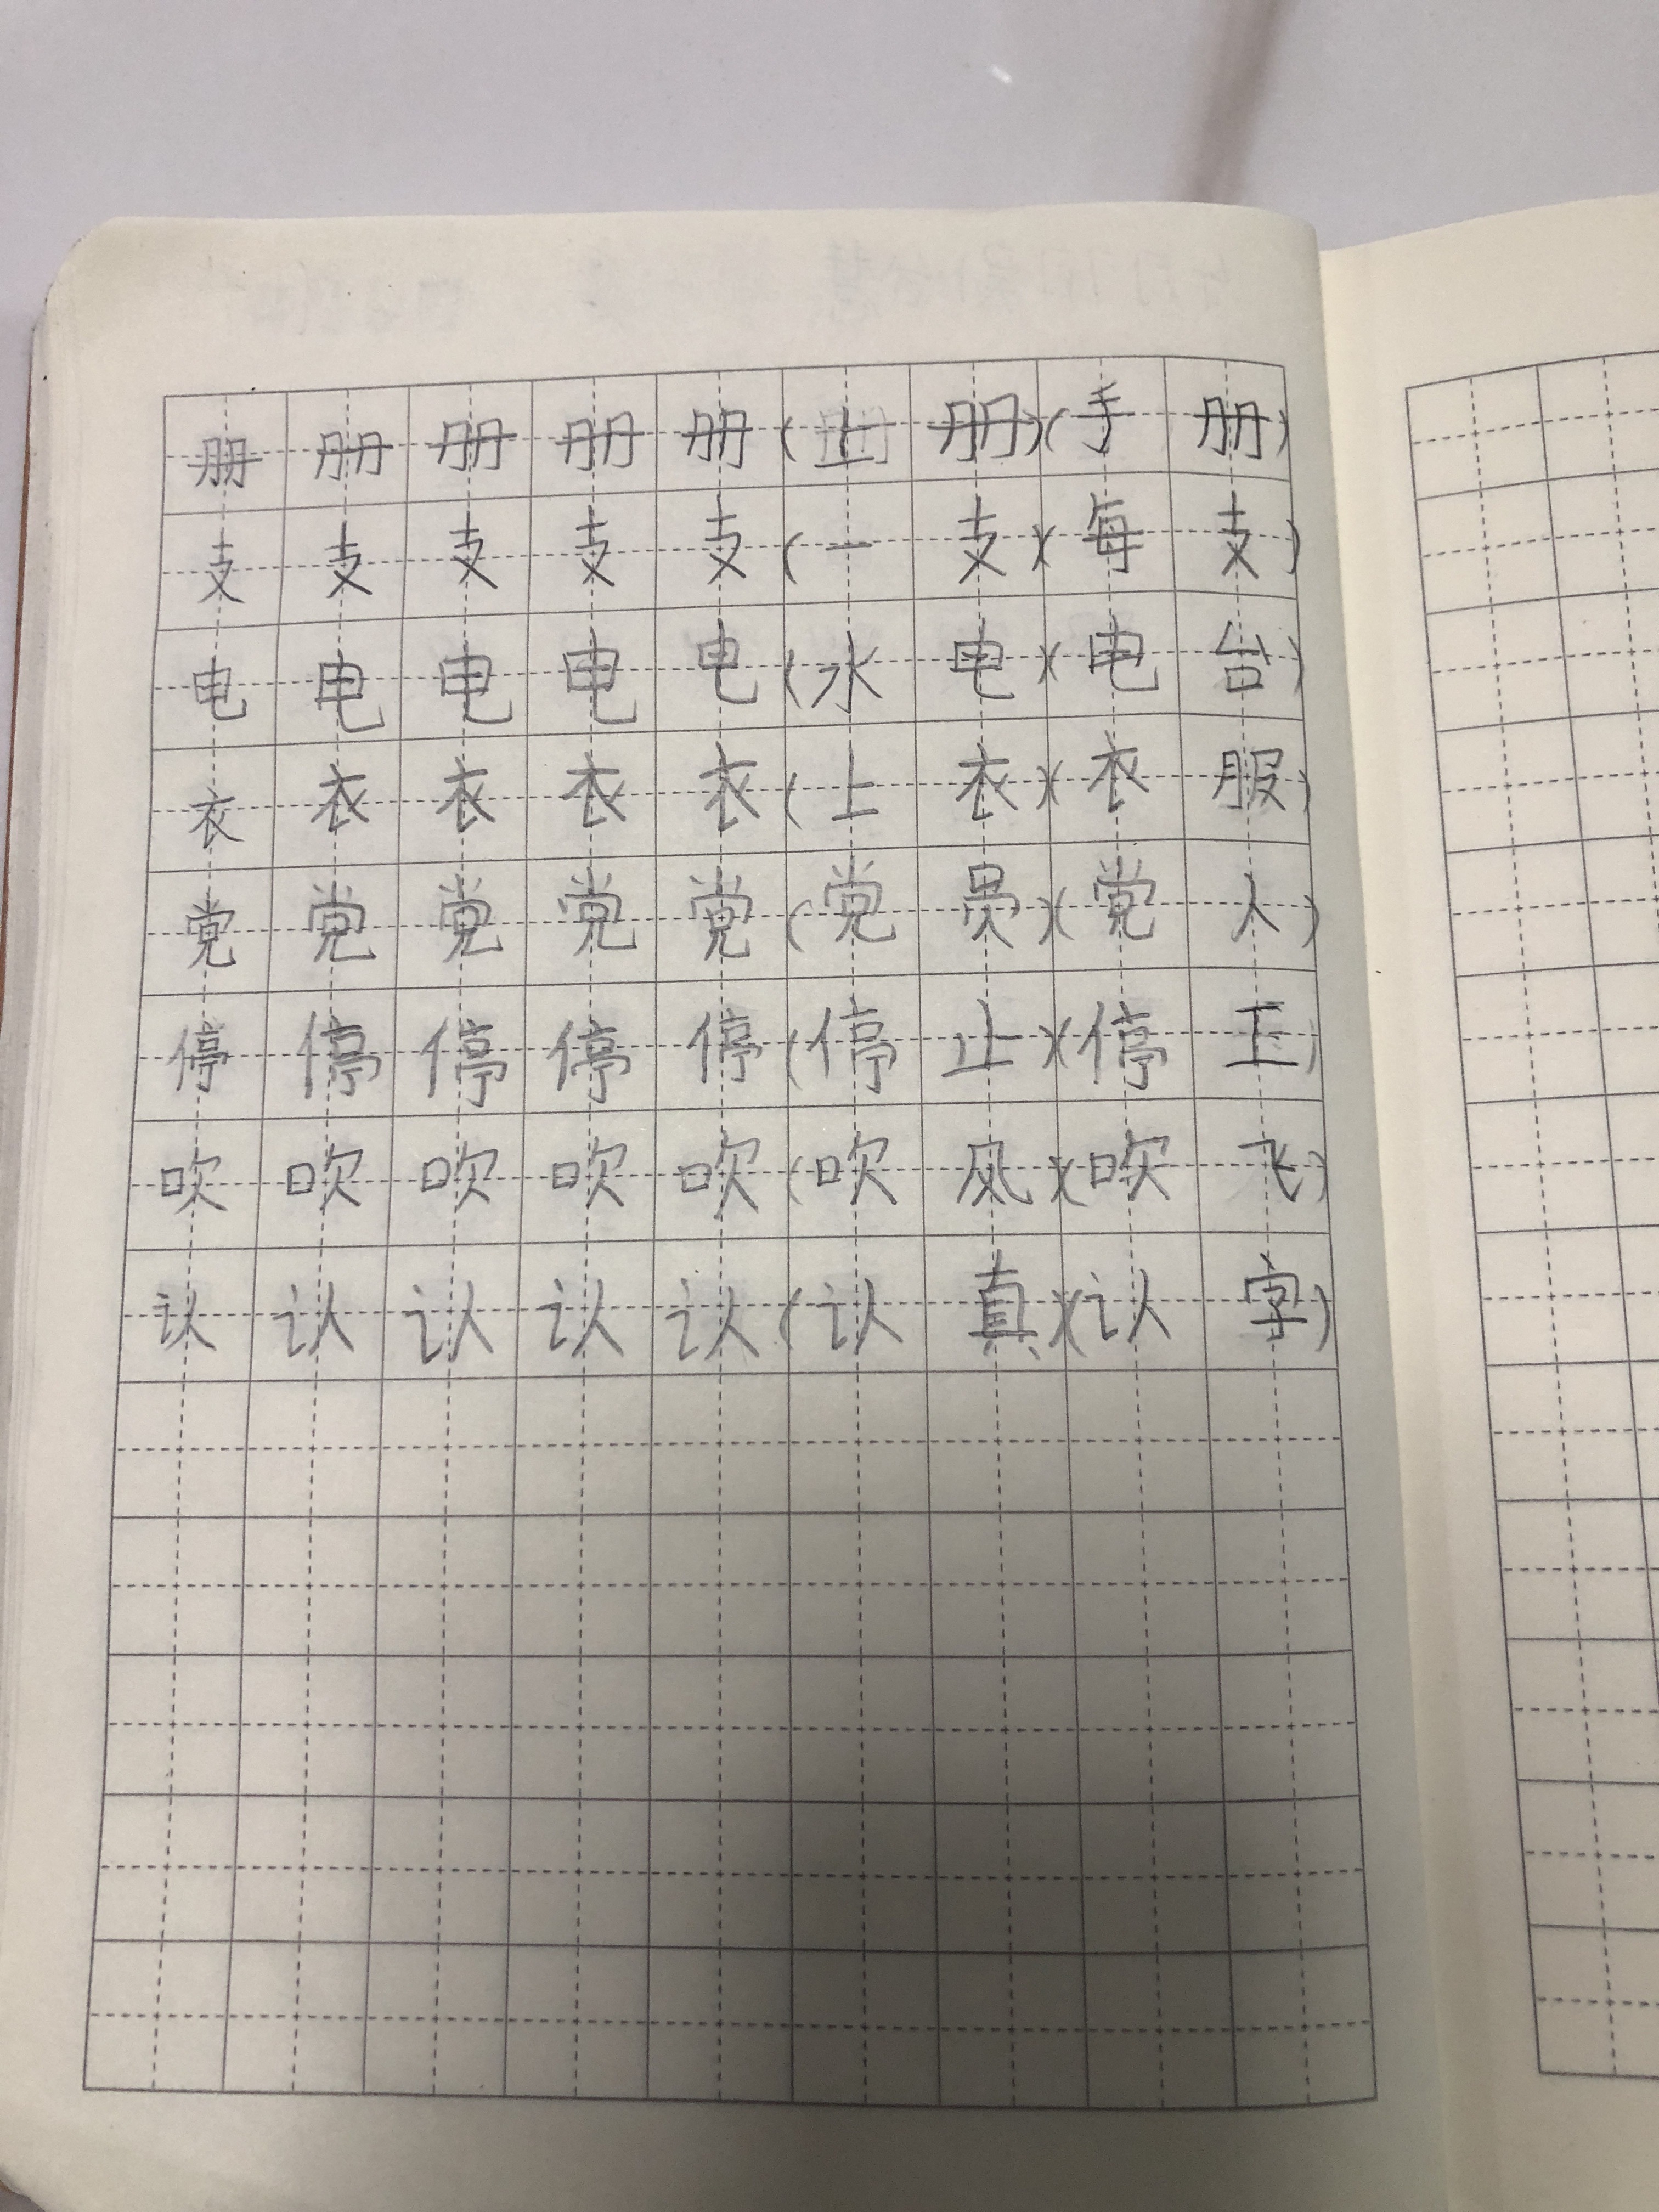 册册册册册(上册)(手册)
支支支支支(一支)(每支)
电电电电电(水电)(电台)
衣衣衣衣衣(上衣)(衣服)
党党党党党(党员)(党人)
停停停停停(停止)(停工)
吹吹吹吹吹(吹风)(吹飞)
认认认认认(认真)(认字)